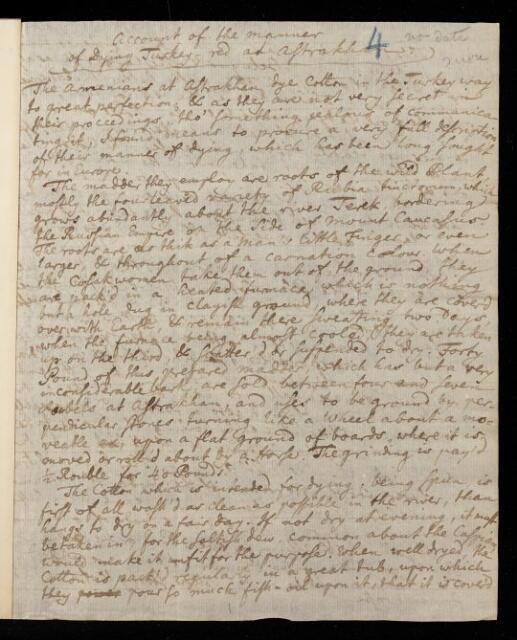 Account of the manner
of Dying Turkey red at Astrakhan 4 no date
The Armenians at Astrakhan dye Cotton in the Turkey way
to great perfection; & as they are not very secret in
their proceedings, tho' something jealous of communica
ting it, I found means to procure a very full description
of their manner of dying, which has been long sought
for in Europe.
The madder they employ are roots of the wild Plant,
mostly the four leaved variety of Rubia tinctorum, which
grows abundantly about the river Terek bordering
the Russian Empire on the Side of mount Caucasus
The roots are as thik as a Man's little Finger, or even
larger, & throughout of a carnation colour. When
the Cosak women take them out of the ground, they
are pack'd in a heated furnace, which is nothing
but a hole dug in clayish ground, where they are coverd
over with Earth, & remain there sweating two Days
when the furnace being almost cooled they are taken
up on the third & scatter'd or suspended to dry. Forty
Pound of this prepared madder which has but a very
inconsiderable bark, are sold between four and seven
Roubels at Astrakhan, and uses to be ground by per-
pendicular stones turning like a Wheel about a mo-
veable axis upon a flat ground of boards, where it is
moved or rolld about by a Horse. The grinding is pay'd
½ Rouble for 40 Pounds.
The Cotton which is intended for dying, being spun is
first of all wash'd as clean as possible in the river, than
hangs to dry on a fair day. If not dry at evening, it must
be taken in, for the saltish dew common about the Caspian
would make it unfit for the purpose. When well dryed, the
Cotton is pack'd regularly in a great tub, upon which
they pour so much fish-oil upon it, that it is coverd